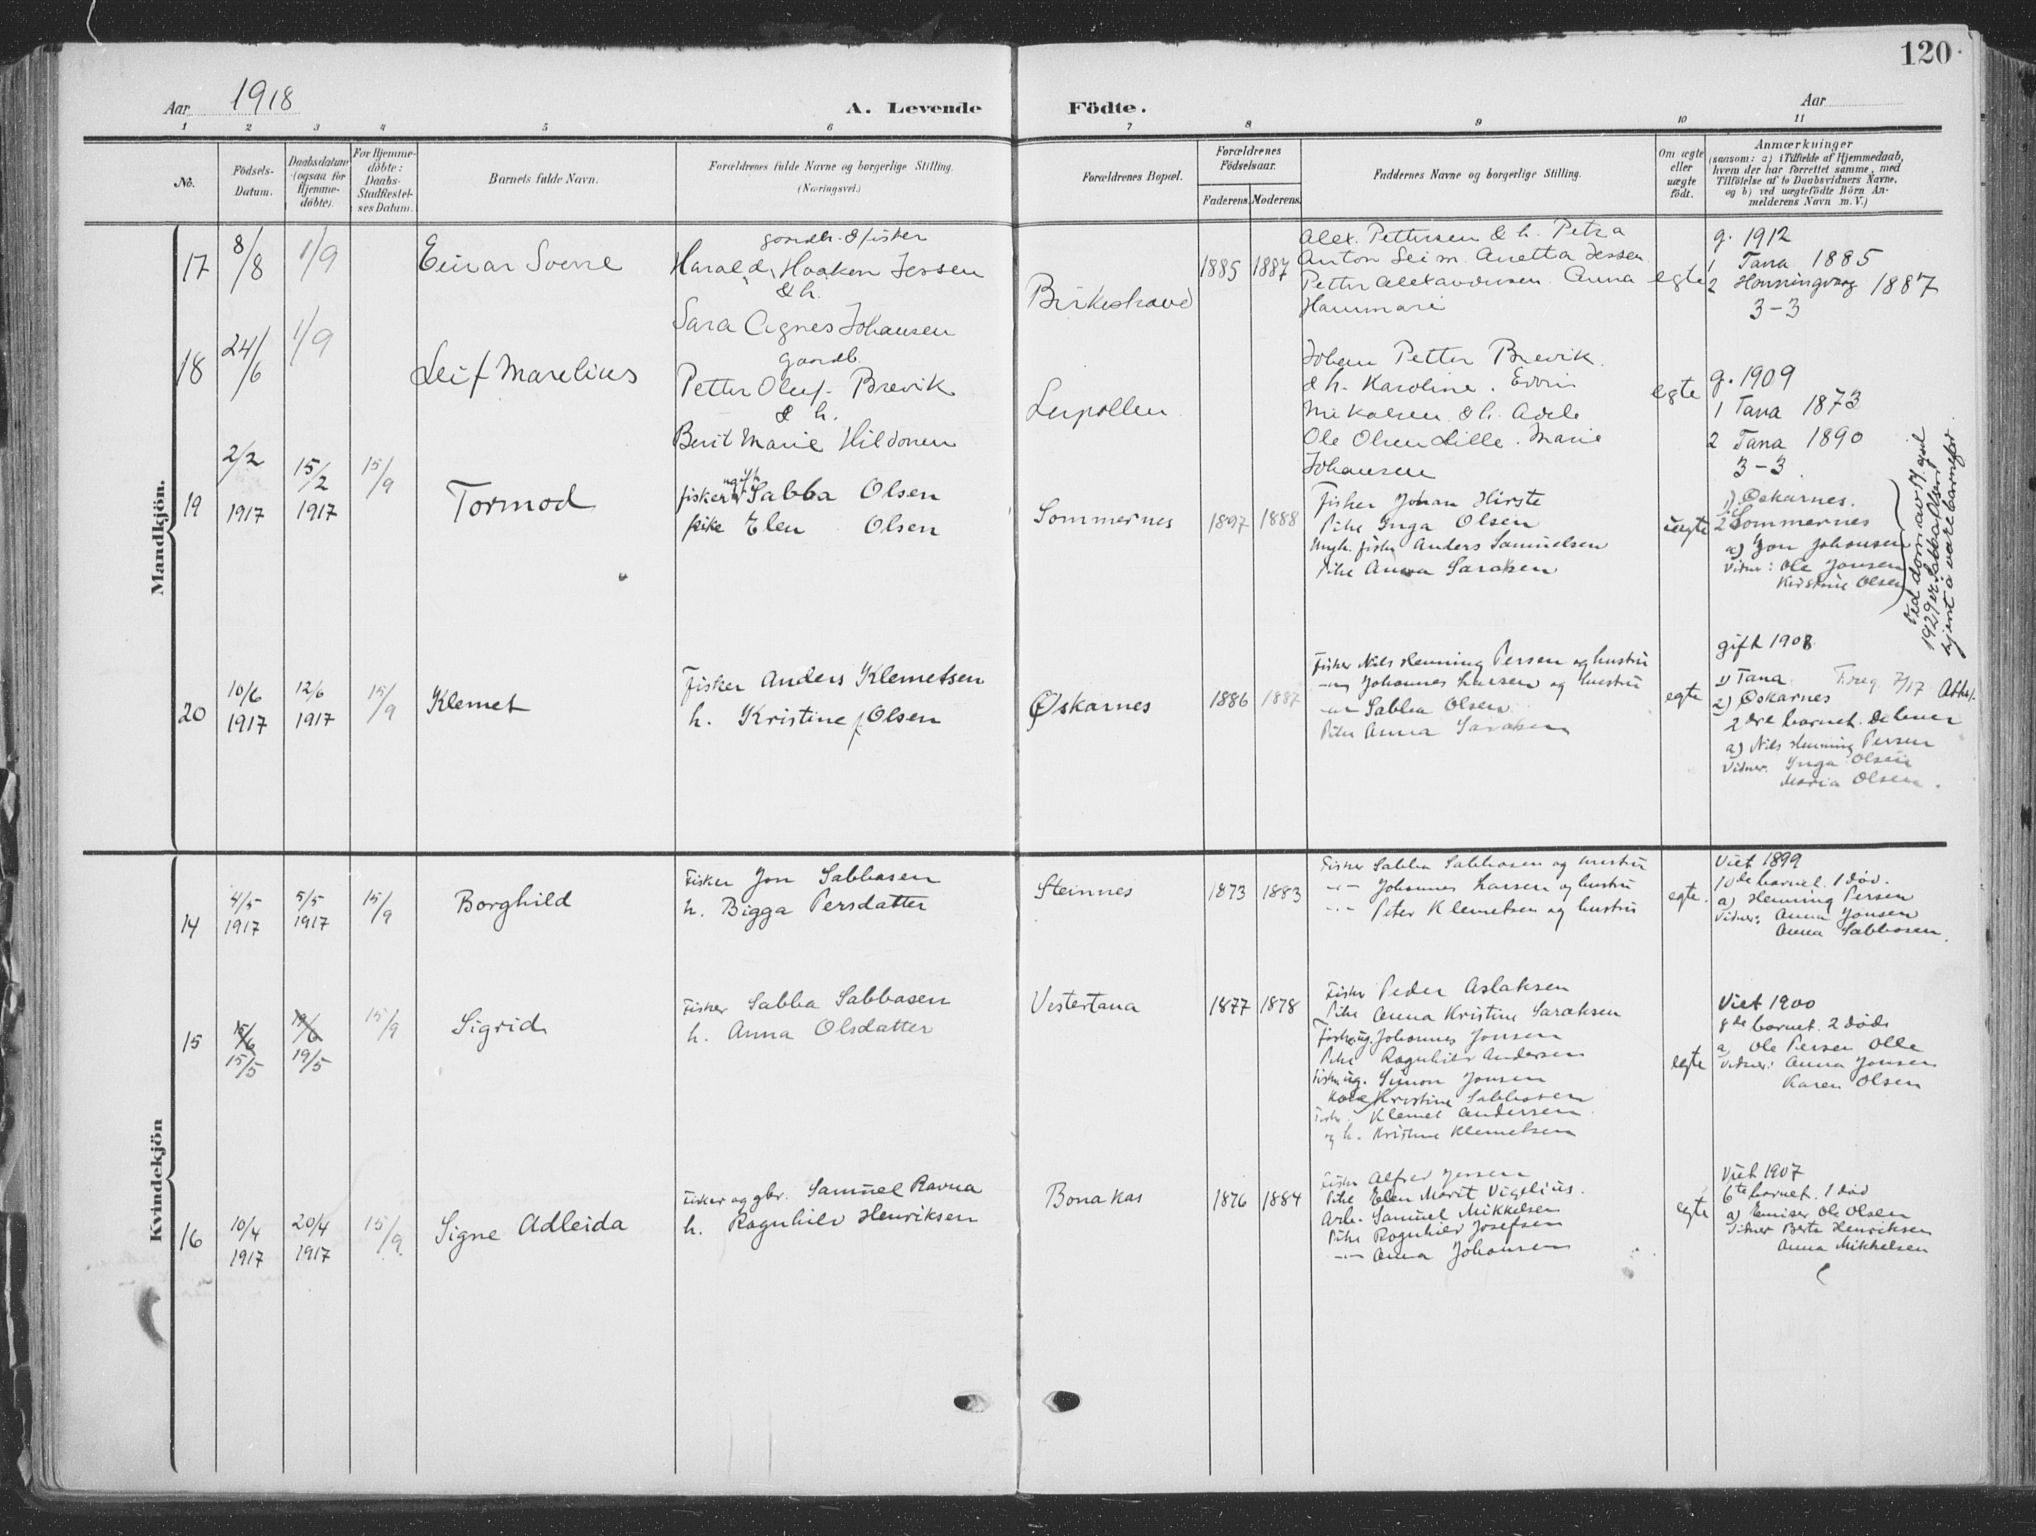 120
Aar 1918 A. Levende Födte. Aar
1 2 3 4 5 6 7 8 9 10 11
No.
Födsels-Datum.
Daabsdatum (ogsaa for Hjemme-döbte).
For Hjemme-döbte: Daabs-Stadfæstel-ses Datum.
Barnets fulde Navn.
Forældrenes fulde Navne og borgerlige Stilling.
(Næringsvei.)
Forældrenes Bopæl.
Forældrenes Födselsaar.
Faderens. Moderens.
Faddernes Navne og borgerlige Stilling.
Om ægte eller uægte födt.
Anmærkninger
(saasom: a) i Tilfælde af Hjemmedaab,
hvem der har forrettet samme, med
Tilföielse af to Daabsvidners Navne,
og b) ved uægtefödte Börn An-
melderens Navn m. V.)
Mandkjön.
17 8/8 1/9 Einar Sverre
gaardb. & fisker
Harald Haakon Jessen
& h.
Sara Agnes Johansen
Birkestrand 1885 1887
Alex. Pettersen & h. Petra
Anton Seim. Anetta Jessen
Petter Alexandersen. Anna
Hammari
egte
g. 1912
1 Tana 1885
2 Honningvaag 1887
3-3
18 24/6 1/9 Leif Marelius
gaardb.
Petter Oluf Brevik
& h.
Berit Marie Hildonen
Leirpollen
Johan Petter Brevik.
& h. Karoline. Edvin
Nikolsen & h. Adele
Ole Olsen Lille. Marie
Johansen
egte
g. 1909
1 Tana 1873
2 Tana 1890
3-3.
19 2/2 1917 15/2 1917 15/9 Tormod
ugift
fisker Sabba Olsen
pike Elen Olsen
Sommernes 1897 1888
Fisker Johan Hirste
Pike Inga Olsen
Ungk. fisker Anders Samuelsen
Pike Anna Saraksen
uegte
1) Øskarnes.
2) Sommernes
a) Jon Johansen
Vidner: Ole Jonsen
Kirstine Olsen
Ved dom av 17 april
1929 er Sabba Olsen
kjent å være barnefar
20 10/6 1917 12/6 1917 15/9 Klemet
Fisker Anders Klemetsen
h. Kristine f. Olsen
Øskarnes 1886 1887
Fisker Nils Henning Persen og hustru
-"- Johannes Larsen og hustru
-"- Sabba Olsen
Pike Anna Saraksen
egte
gift 1908
1) Tana
2) Øskarnes
2dre barnet.
a) Nils Henning Persen
Vidner: Inga Olsen
Maria Olsen.
Kvindekjön
14 4/5 1917 5/5 1917 15/9 Borghild
Fisker Jon Sabbasen
h. Bigga Persdatter
Steinnes 1873 1883
Fisker Sabba Sabbasen og hustru
-"- Johannes Larsen og hustru
-"- Peter Klemetsen og hustru
egte.
Viet 1899
10de barnet. 1 død.
a) Henning Persen
Vidner: Anna Jonsen
Anna Sabbasen.
15 15/6 15/5 19/6 19/5 15/9 Sigrid
Fisker Sabba Sabbasen
h. Anna Olsdatter
Vestertana 1877 1878
Fisker Peder Aslaksen
Pike Anna Kristine Saraksen
Fisker ug. Johannes Jonsen
Pike Ragnhild Andersen
Fisker ug. Simon Jonsen
Kone Kristine Sabbasen
Fisker Klemet Andersen
og h. Kristine Klemetsen
egte
Viet 1900
8de barnet. 2 døde
a) Ole Persen Olle
Vidner: Anna Jonsen
Karen Olsen
16 10/4 1917 20/4 1917 15/9 Signe Adleida
Fisker og gbr. Samuel Ravna
h. Ragnhild Henriksen
Bonakas 1876 1884
Fisker Alfred Jessen
Pike Elen Marit Vigelius.
Arb. Samuel Mikkelsen
Pike Ragnhild Josefsen
-"- Anna Johansen
egte
Viet 1907
6te barnet. 1 død
a) Emiser Ole Olsen
Vidner Berte Henriksen
Anna Mikkelsen